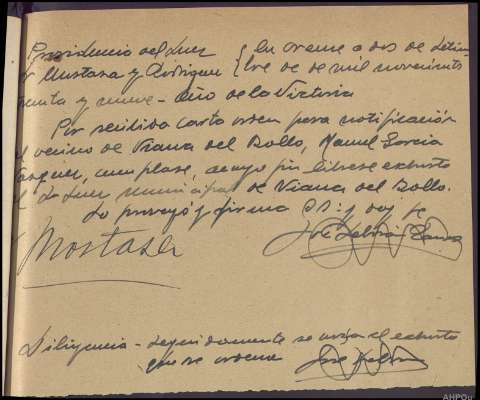 Providencia del Juez } En Orense a dos de Setiem
Sr Mostaza y Rodriguez } bre de mil novecientos
treinta y nueve - Año de la Victoria
Por recibida carta orden para notificación
al vecino de Viana del Bollo, Manuel Garcia
Vazquez, cumplase, a cuyo fin librese exhorto
al Sr Juez municipal de Viana del Bollo.
Lo proveyó y firma S.S: y doy fe
Mostaza
José
Diligencia - Seguidamente se el exhorto
que se ordena José
AHPOu